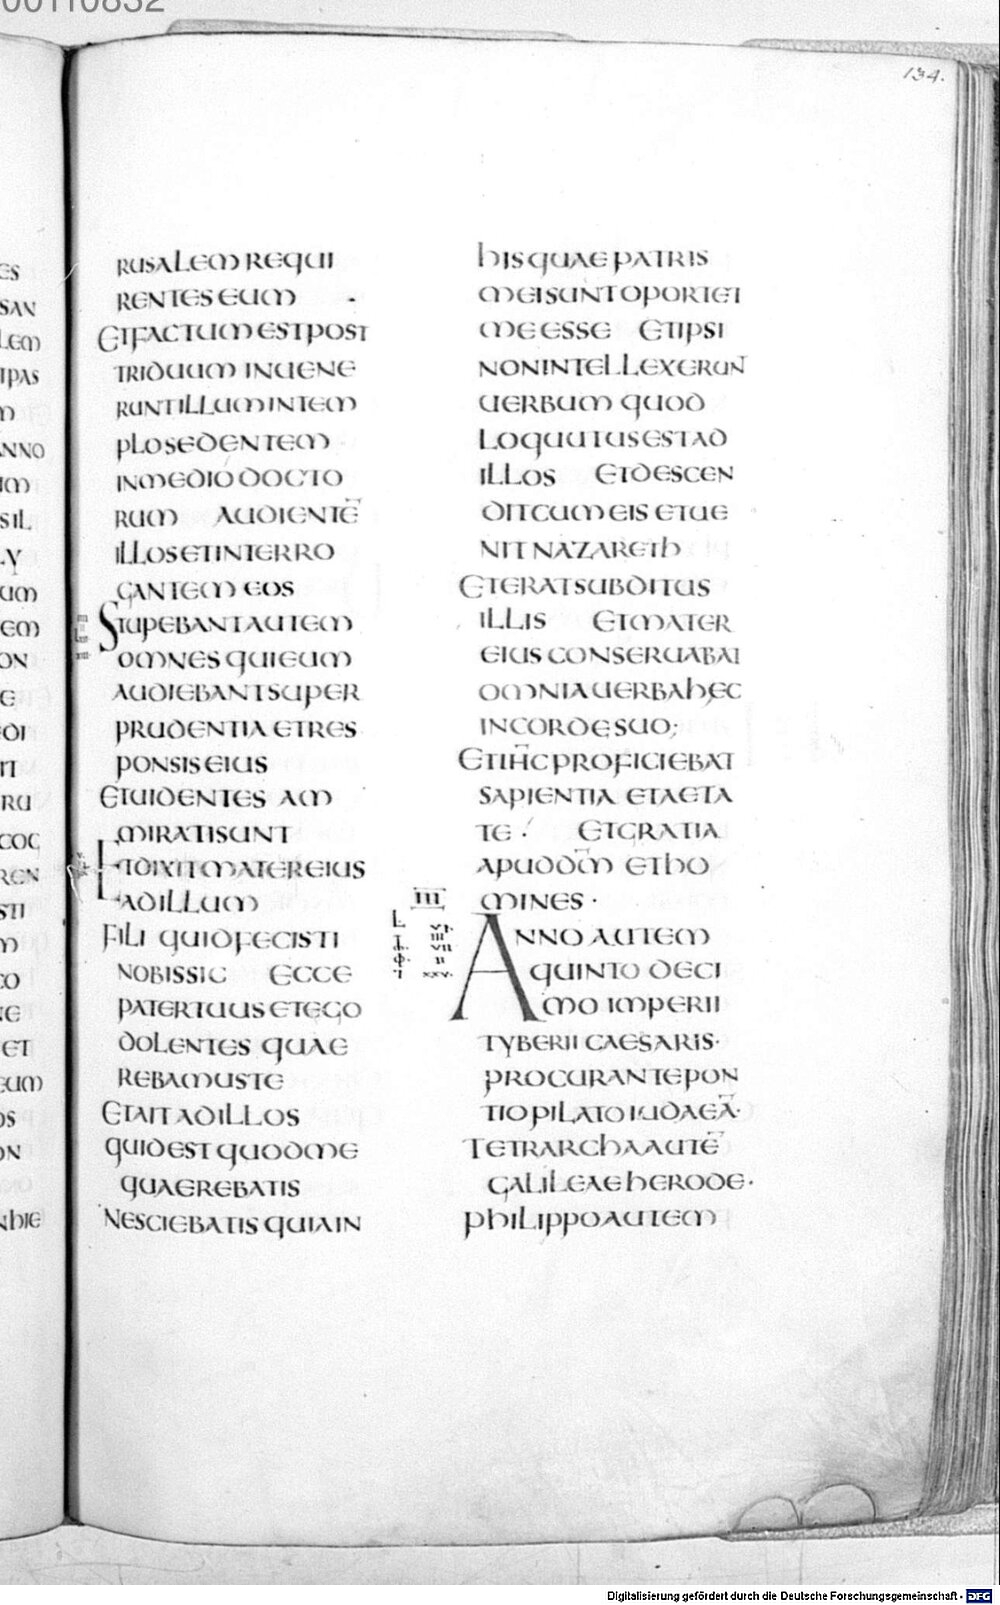 00110832
134.
RUSALEM REQUI
RENTES EUM
ET FACTUM EST POST
TRIDUUM INUENE
RUNT ILLUM IN TEM
PLO SEDENTEM
IN MEDIO DOCTO
RUM AUDIENTĒ
ILLOS ET INTERRO
GANTEM EOS
STUPEBANT AUTEM
OMNES QUI EUM
AUDIEBANT SUPER
PRUDENTIA ET RES
PONSIS EIUS
ET UIDENTES AM
MIRATI SUNT
ET DIXIT MATER EIUS
AD ILLUM
FILI QUID FECISTI
NOBIS SIC ECCE
PATER TUUS ET EGO
DOLENTES QUAE
REBAMUS TE
ET AIT AD ILLOS
QUID EST QUOD ME
QUAEREBATIS
NESCIEBATIS QUIA IN
HIS QUAE PATRIS
MEI SUNT OPORTET
ME ESSE ET IPSI
NON INTELLEXERUNT
UERBUM QUOD
LOQUUTUS EST AD
ILLOS ET DESCEN
DIT CUM EIS ET UE
NIT NAZARETH
ET ERAT SUBDITUS
ILLIS ET MATER
EIUS CONSERUABAT
OMNIA UERBA HĘC
IN CORDE SUO;
ET IH̅C PROFICIEBAT
SAPIENTIA ET AETA
TE · ET GRATIA
APUD DM̅ ET HO
MINES ·
III
ANNO AUTEM
QUINTO DECI
MO IMPERII
TYBERII CAESARIS·
PROCURANTE PON
TIO PILATO IUDAEĀ·
TETRARCHA AUTĒ
GALILEAE HERODE·
PHILIPPO AUTEM
Digitalisierung gefördert durch die Deutsche Forschungsgemeinschaft - DFG